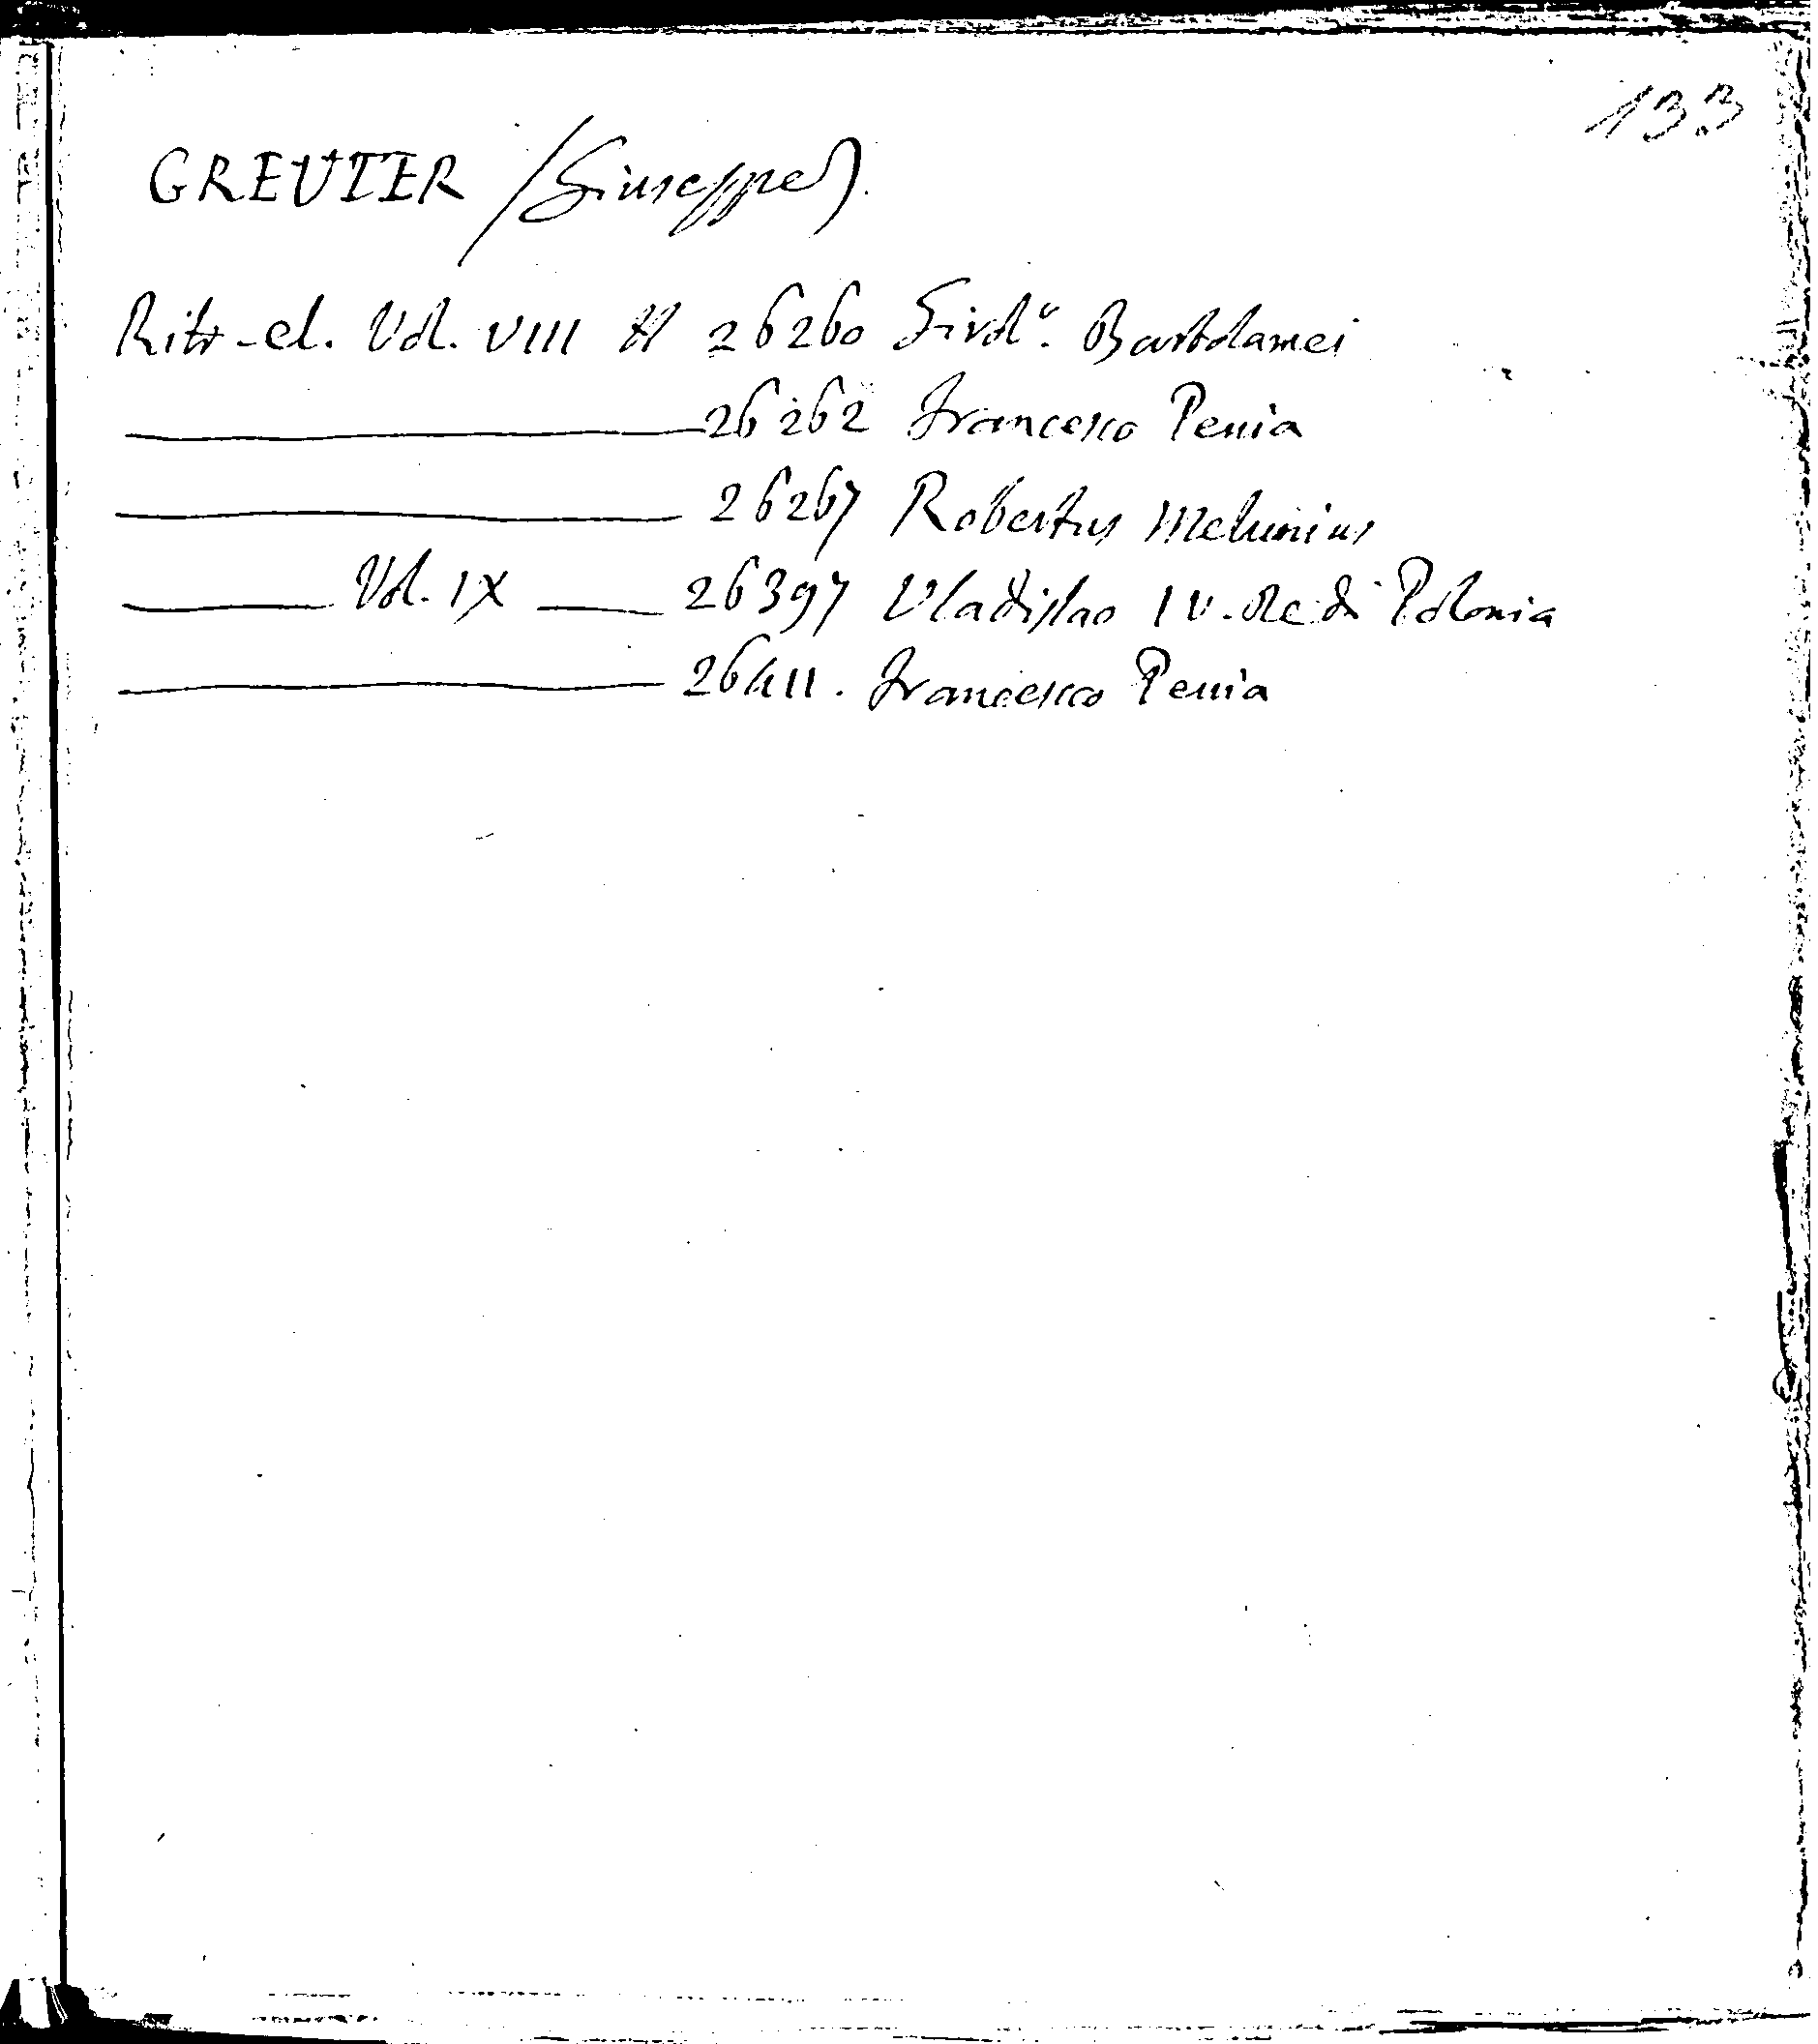 133
GREUTER (Giuseppe).
Ritr-el. Vol. VIII N 26260 Girolº. Bartolamei
26262 Francesco Penia
26267 Robertus Melunius
Vol. IX 26397 Uladislao IV. Re di Polonia
26411. Francesco Penia